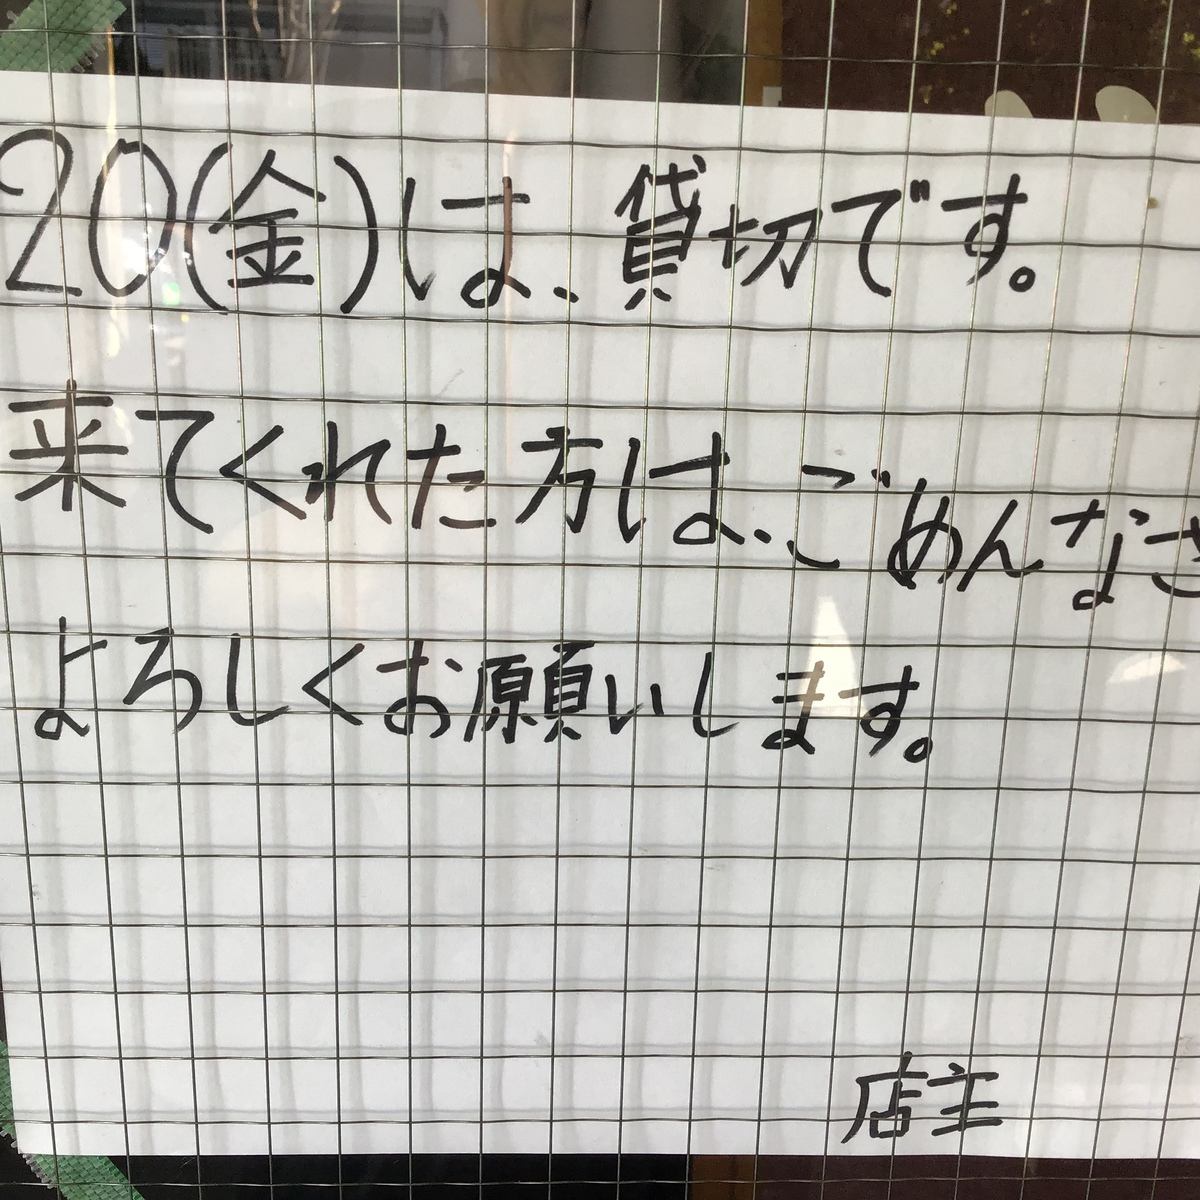 20(金)は、貸切です。
来てくれた方は、ごめんなさ
よろしくお願いします。
店主